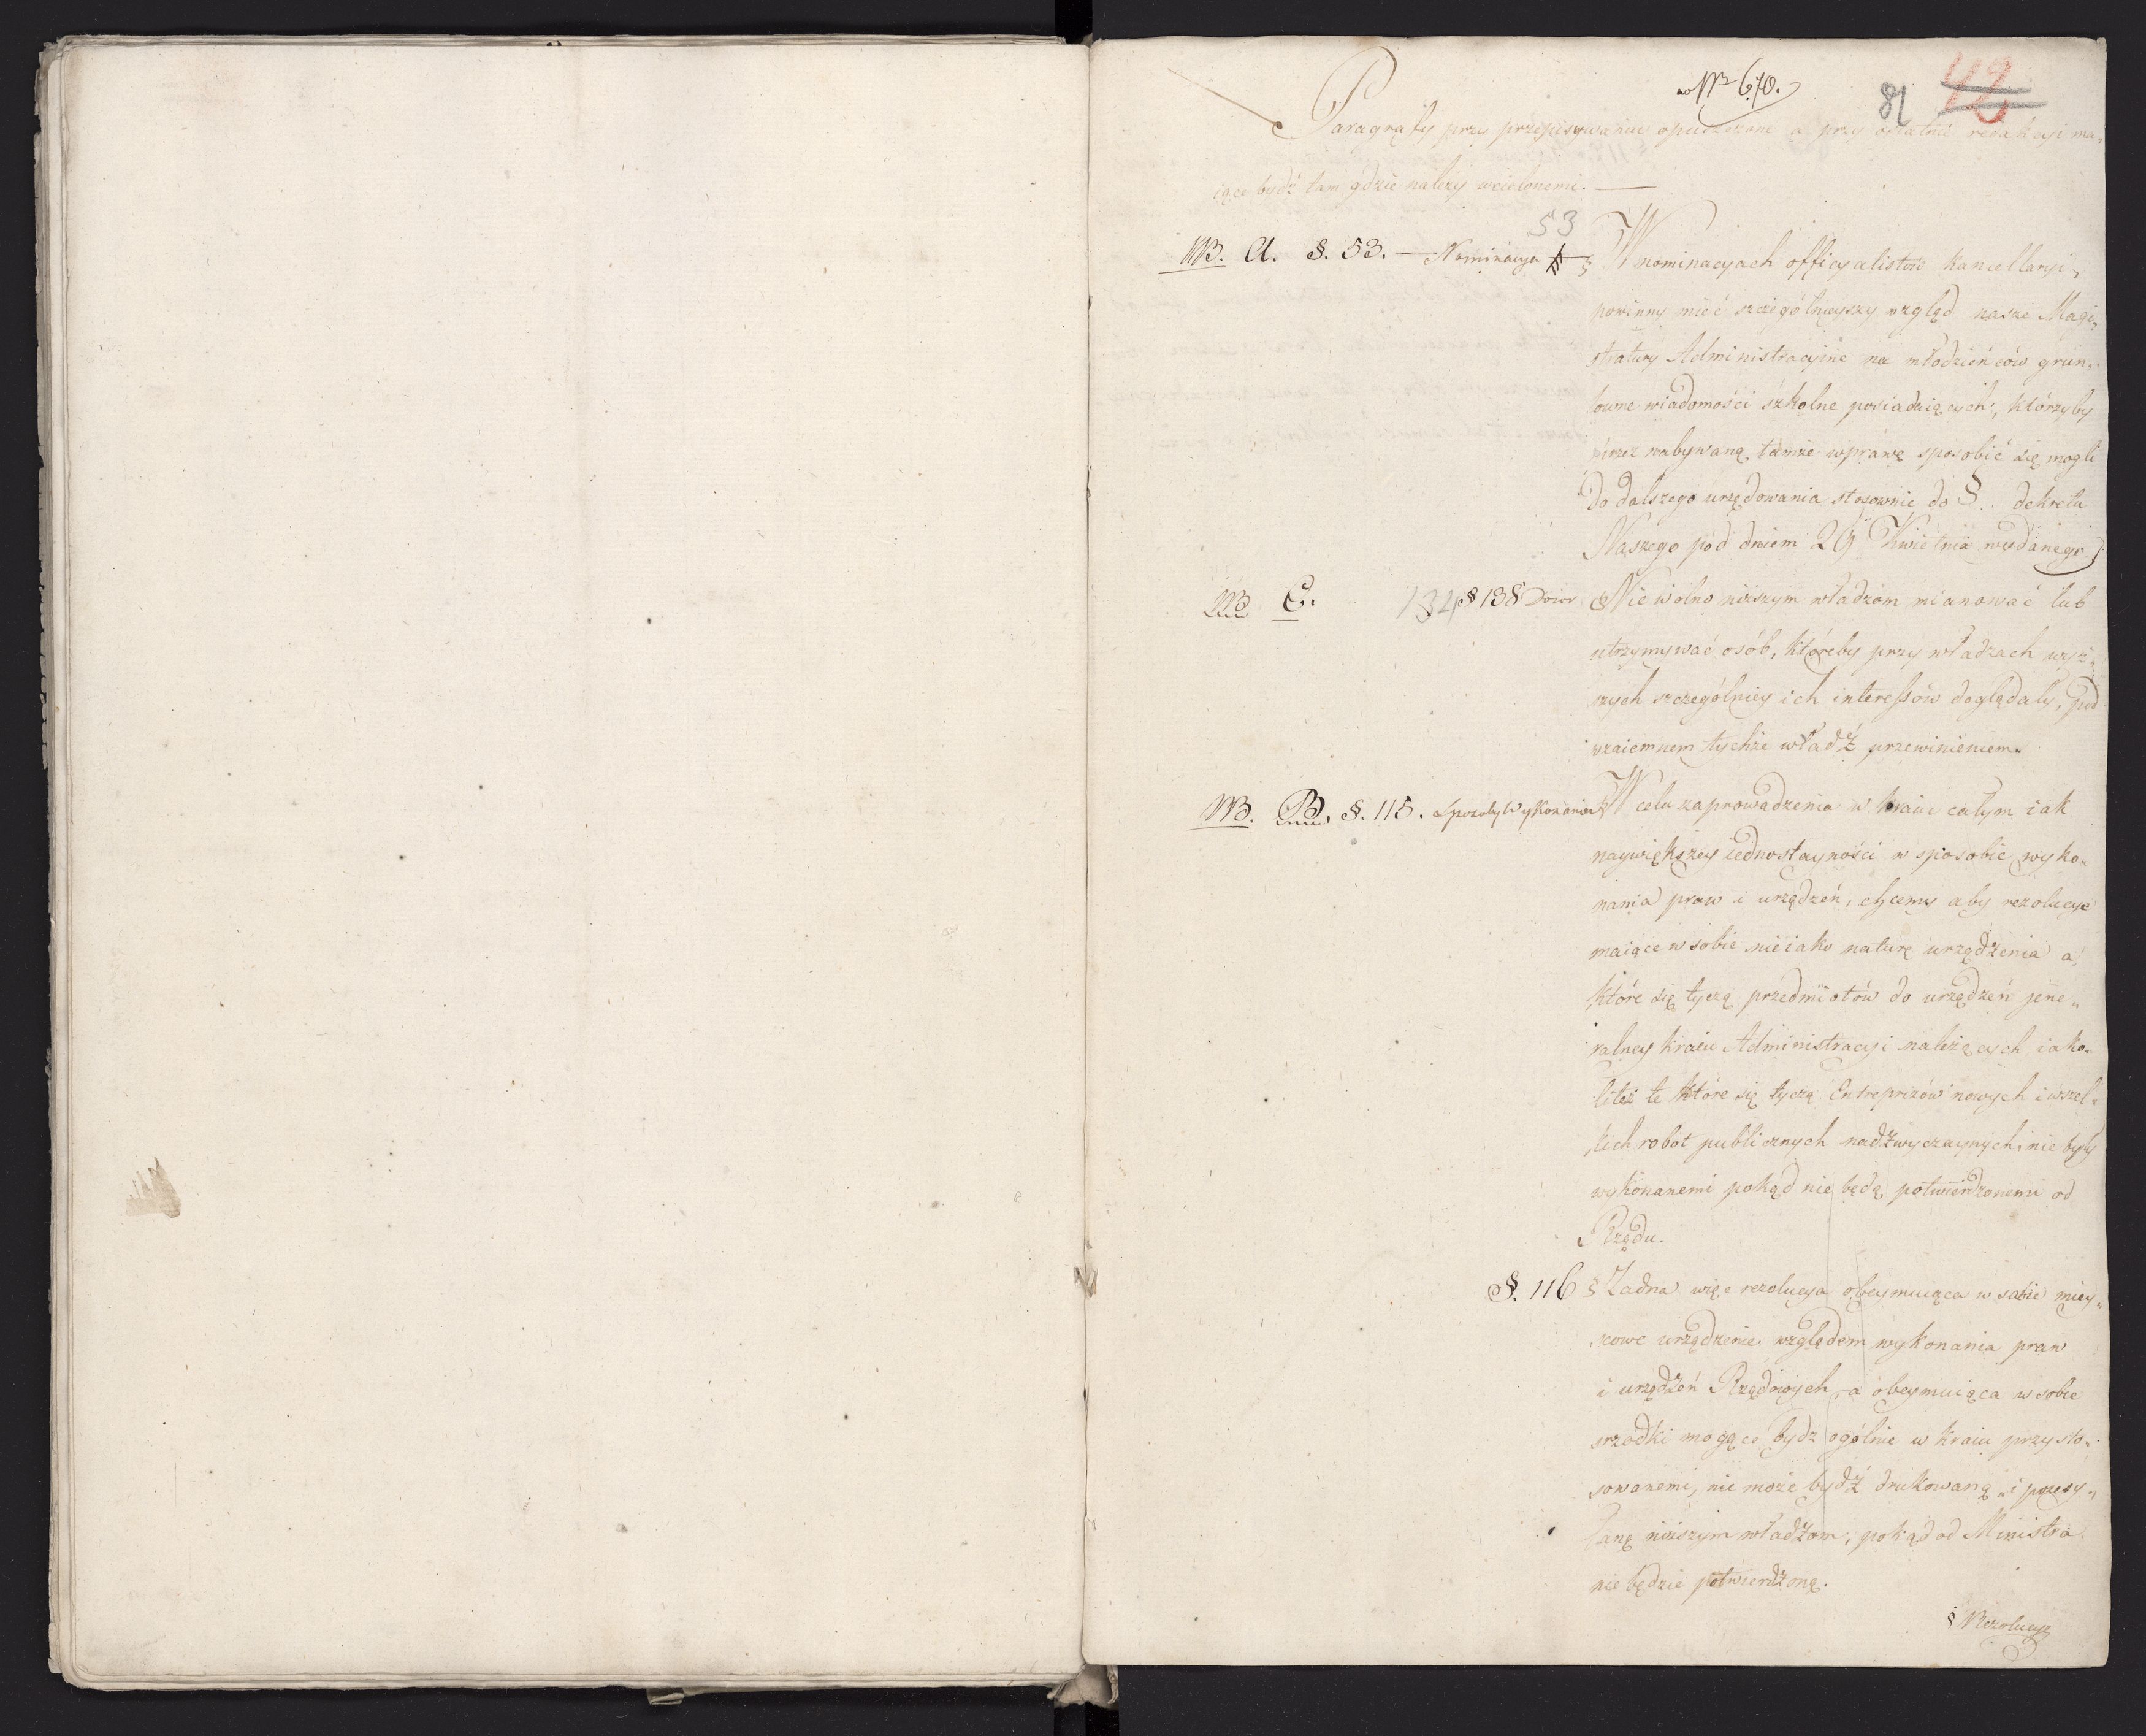 Nro 670.
81 42
Paragrafy przy przepisywaniu opuszczone a przy ostatnie redakcyi ma„
iące bydź tam gdzie należy wcielonemi. —
53
NB. A. §. 53. — Nominacya § W nominacyach officyalistów kancellaryi,
powinny mieć szczególnieyszy wzgląd nasze Magi„
stratury Administracyine na młodzieńców grun„
towne wiadomości szkolne posiadaiących, którzyby
przez nabywaną tamże wprawę sposobić się mogli
do dalszego urzędowania stosownie do §.. dekretu
Naszego pod dniem 29 Kwietnia wydanego
NB. C. 134 § 138 Dozor § Nie wolno niższym władzom mianować lub
utrzymywać osób, któreby przy władzach wyż„
szych szczególniey ich interessów doglądały, pod
wzaiemnem tychże władź przewinieniem.
NB. B. §. 115. Sposoby wykonania § W celu zaprowadzenia w kraiu całym iak
naywiększey iednostayności w sposobie wyko„
nania praw i urządzeń, chcemy aby rezolucye
maiące w sobie nieiako naturę urządzenia a
które się tyczą przedmiotów do urządzeń jene„
ralney kraiu Administracyi należących iako„
też te które się tyczą Entreprizów nowych i wszel„
kich robot publicznych nadzwyczaynych, nie były
wykonanemi pokąd nie będą potwierdzonemi od
Rządu.
§. 116 § Żadna więc rezolucya obeymuiąca w sobie miey„
scowe urządzenie względem wykonania praw
i urządzeń Rządowych, a obeymuiąca w sobie
srzodki mogące bydz ogólnie w kraiu przysto„
sowanemi, nie może bydź drukowaną i przesy„
łaną niższym władzom, pokąd od Ministra
nie będzie potwierdzoną.
§ Rezolucye